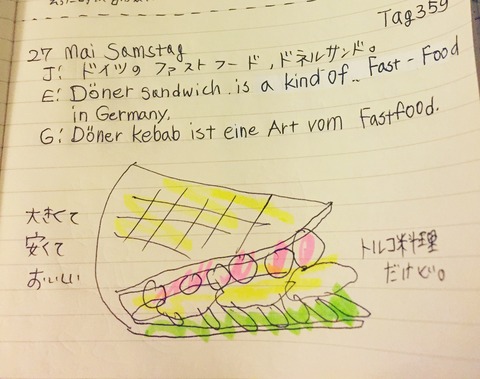 Tag359
27 Mai Samstag
J: ドイツのファストフード,ドネルサンド。
E: Döner sandwich is a kind of Fast-Food
in Germany.
G: Döner kebab ist eine Art vom Fastfood.
大きくて
安くて
おいしい
トルコ料理
だけど。